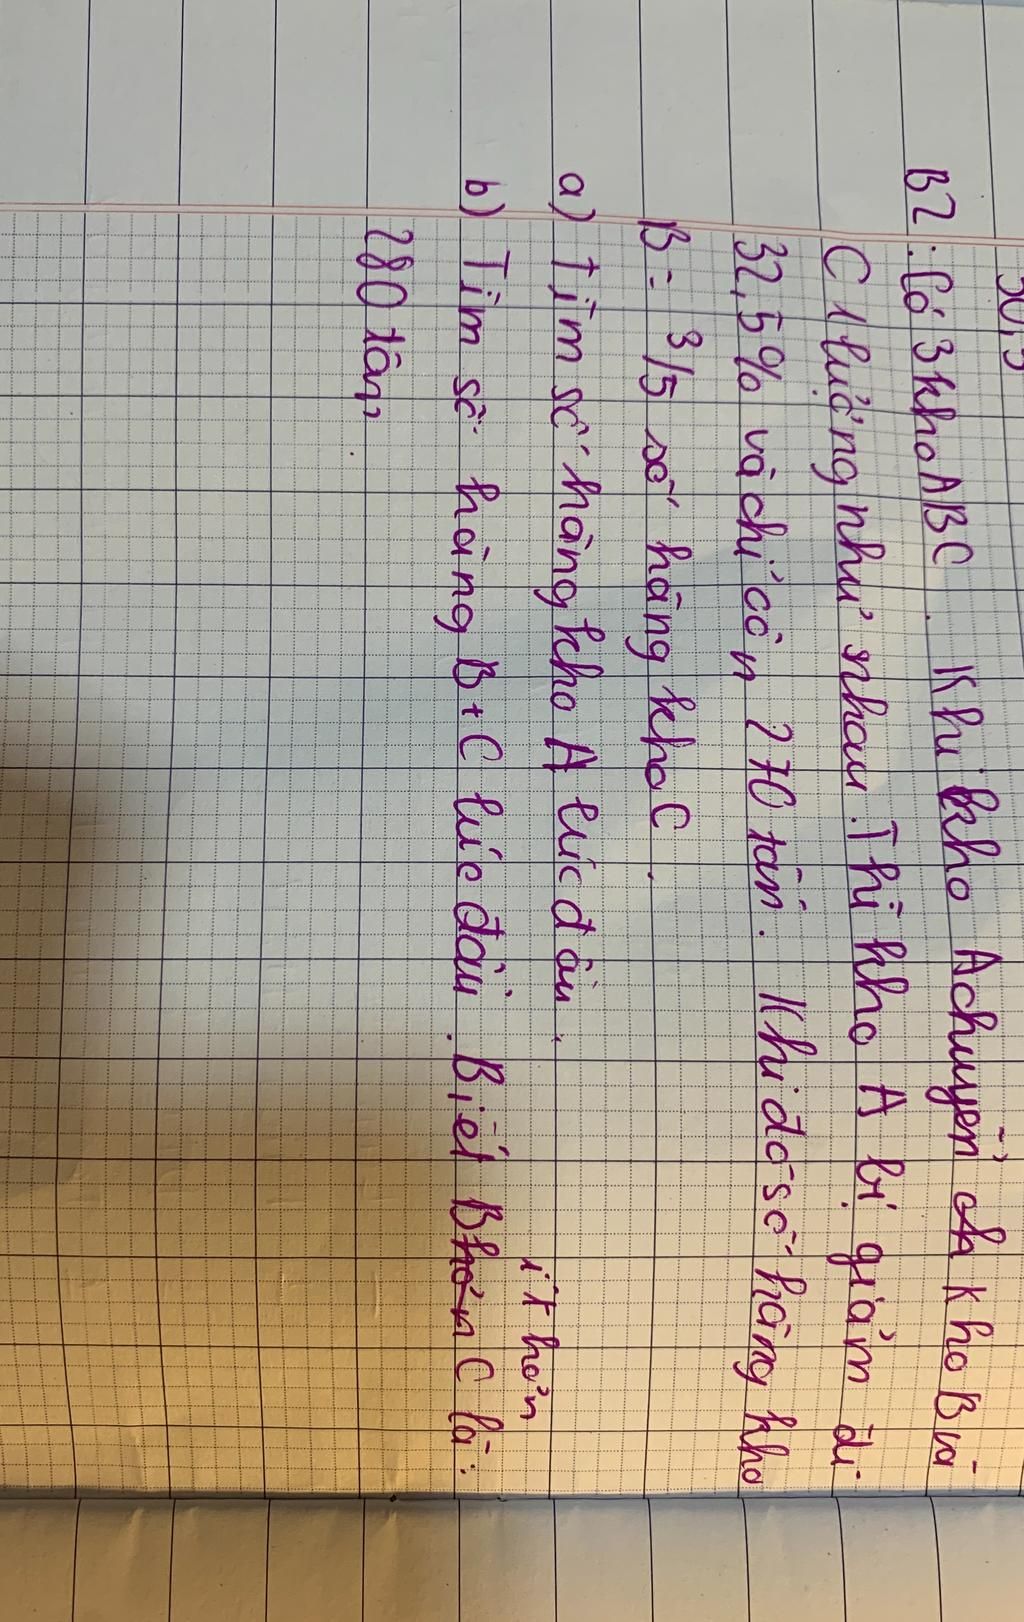 B2. Có 3 kho ABC. Khi kho A chuyển kho B và
C 1 lượng như nhau. Thì kho A bị giảm đi
32,5% và chỉ còn 270 tấn. Khi đó số hàng kho
B = 3/5 số hàng kho C.
a) Tìm số hàng kho A lúc đầu.
ít hơn
b) Tìm số hàng B + C lúc đầu. Biết B hơn C là:
280 tấn